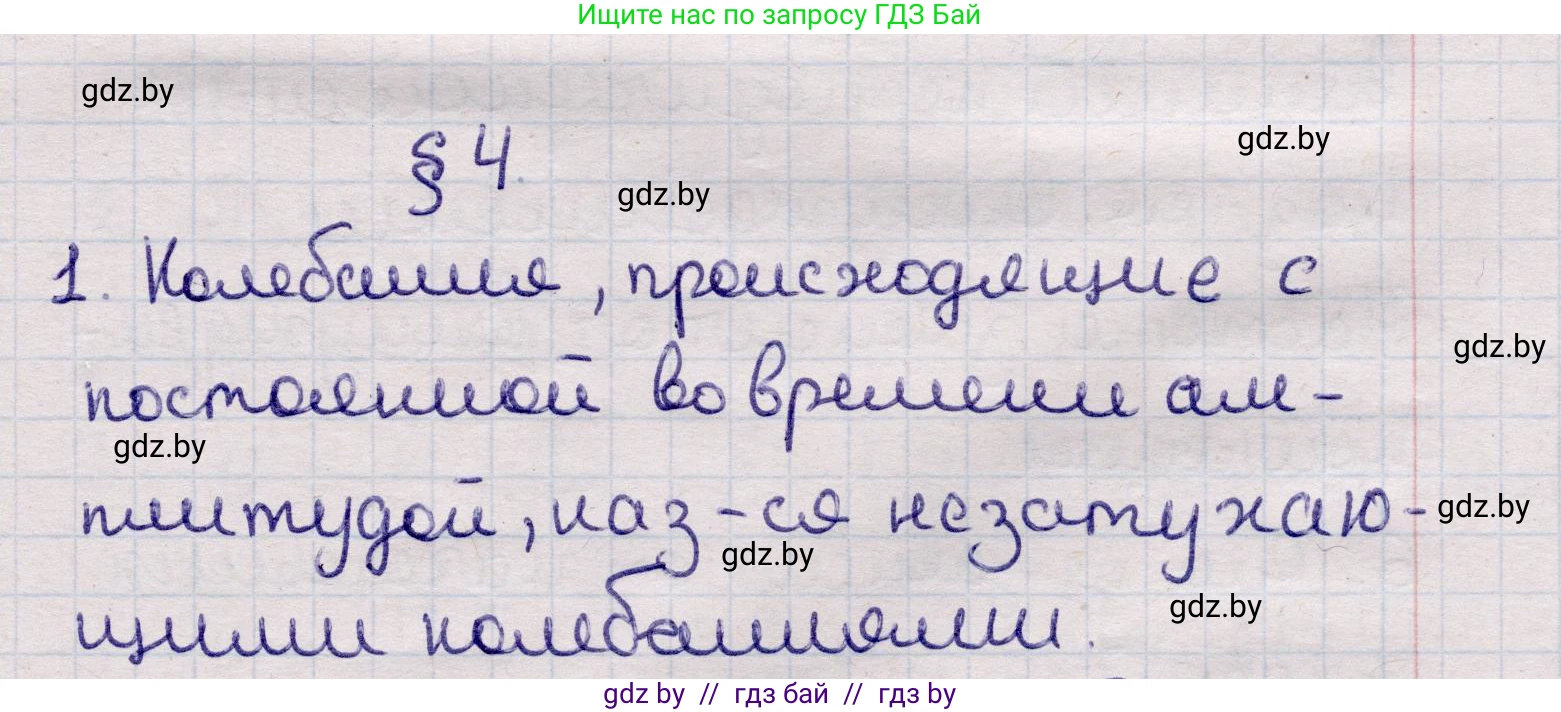 Ищите нас по запросу ГДЗ Бай
gdz.by
§ 4.
gdz.by
gdz.by
1. Колебания, происходящие с
gdz.by
постоянной во времени ам-
gdz.by
плитудой, наз-ся незатухаю-
gdz.by
gdz.by
gdz.by
щими колебаниями.
gdz by // гдз бай // гдз by